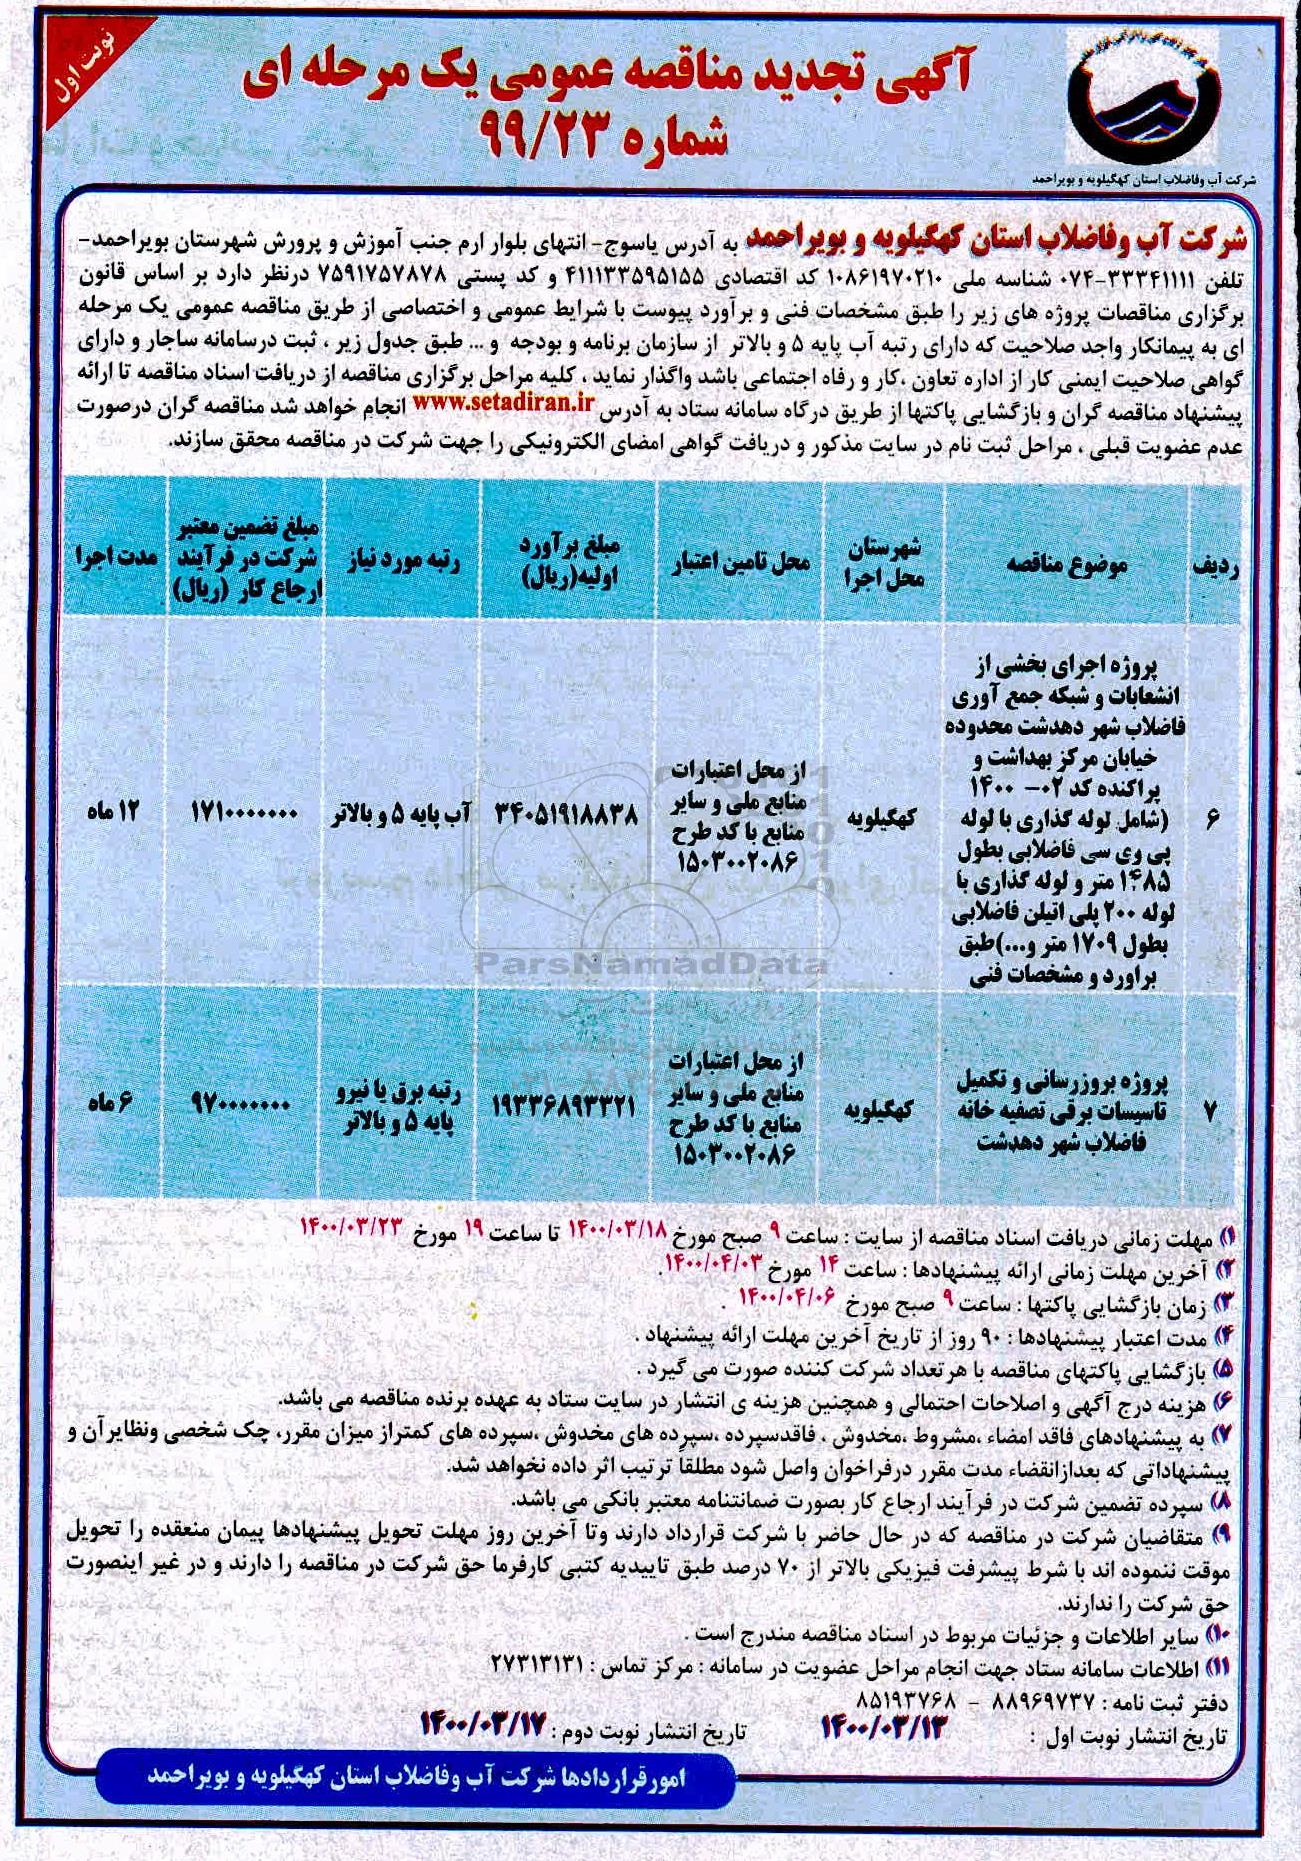 نوبت اول
آگهی تجدید مناقصه عمومی یک مرحله ای
شماره ۹۹/۲۳
شرکت آب وفاضلاب استان کهگیلویه و بویراحمد
شرکت آب وفاضلاب استان کهگیلویه و بویراحمد به آدرس یاسوج- انتهای بلوار ارم جنب آموزش و پرورش شهرستان بویراحمد-
تلفن ۳۳۳۴۱۱۱۱-۰۷۴ شناسه ملی ۱۰۸۶۱۹۷۰۲۱۰ کد اقتصادی ۴۱۱۱۳۳۵۹۵۱۵۵ و کد پستی ۷۵۹۱۷۵۷۸۷۸ درنظر دارد بر اساس قانون
برگزاری مناقصات پروژه های زیر را طبق مشخصات فنی و برآورد پیوست با شرایط عمومی و اختصاصی از طریق مناقصه عمومی یک مرحله
ای به پیمانکار واجد صلاحیت که دارای رتبه آب پایه ۵ و بالاتر از سازمان برنامه و بودجه و ... طبق جدول زیر ، ثبت درسامانه ساجار و دارای
گواهی صلاحیت ایمنی کار از اداره تعاون ،کار و رفاه اجتماعی باشد واگذار نماید ، کلیه مراحل برگزاری مناقصه از دریافت اسناد مناقصه تا ارائه
پیشنهاد مناقصه گران و بازگشایی پاکتها از طریق درگاه سامانه ستاد به آدرس www.setadiran.ir انجام خواهد شد مناقصه گران درصورت
عدم عضویت قبلی ، مراحل ثبت نام در سایت مذکور و دریافت گواهی امضای الکترونیکی را جهت شرکت در مناقصه محقق سازند.
ردیف
موضوع مناقصه
شهرستان
محل اجرا
محل تامین اعتبار
مبلغ برآورد
اولیه(ریال)
رتبه مورد نیاز
مبلغ تضمین معتبر
شرکت در فرآیند
ارجاع کار (ریال)
مدت اجرا
۶
پروژه اجرای بخشی از
انشعابات و شبکه جمع آوری
فاضلاب شهر دهدشت محدوده
خیابان مرکز بهداشت و
پراکنده کد ۰۲- ۱۴۰۰
(شامل لوله گذاری با لوله
پی وی سی فاضلابی بطول
۱۴۸۵ متر و لوله گذاری با
لوله ۲۰۰ پلی اتیلن فاضلابی
بطول ۱۷۰۹ متر و...)طبق
براورد و مشخصات فنی
کهگیلویه
از محل اعتبارات
منابع ملی و سایر
منابع با کد طرح
۱۵۰۳۰۰۲۰۸۶
۳۴۰۵۱۹۱۸۸۳۸
آب پایه ۵ و بالاتر
۱۷۱۰۰۰۰۰۰۰
۱۲ ماه
۷
پروژه بروزرسانی و تکمیل
تاسیسات برقی تصفیه خانه
فاضلاب شهر دهدشت
کهگیلویه
از محل اعتبارات
منابع ملی و سایر
منابع با کد طرح
۱۵۰۳۰۰۲۰۸۶
۱۹۳۳۶۸۹۳۳۲۱
رتبه برق یا نیرو
پایه ۵ و بالاتر
۹۷۰۰۰۰۰۰۰
۶ ماه
ParsNamadData
۱) مهلت زمانی دریافت اسناد مناقصه از سایت : ساعت ۹ صبح مورخ ۱۴۰۰/۰۳/۱۸ تا ساعت ۱۹ مورخ ۱۴۰۰/۰۳/۲۳
۲) آخرین مهلت زمانی ارائه پیشنهادها : ساعت ۱۴ مورخ ۱۴۰۰/۰۴/۰۳.
۳) زمان بازگشایی پاکتها : ساعت ۹ صبح مورخ ۱۴۰۰/۰۴/۰۶ .
۴) مدت اعتبار پیشنهادها : ۹۰ روز از تاریخ آخرین مهلت ارائه پیشنهاد .
۵) بازگشایی پاکتهای مناقصه با هر تعداد شرکت کننده صورت می گیرد .
۶) هزینه درج آگهی و اصلاحات احتمالی و همچنین هزینه ی انتشار در سایت ستاد به عهده برنده مناقصه می باشد.
۷) به پیشنهادهای فاقد امضاء ،مشروط ،مخدوش ، فاقدسپرده ،سپرده های مخدوش ،سپرده های کمتراز میزان مقرر، چک شخصی ونظایر آن و
پیشنهاداتی که بعدازانقضاء مدت مقرر درفراخوان واصل شود مطلقا ترتیب اثر داده نخواهد شد.
۸) سپرده تضمین شرکت در فرآیند ارجاع کار بصورت ضمانتنامه معتبر بانکی می باشد.
۹) متقاضیان شرکت در مناقصه که در حال حاضر با شرکت قرارداد دارند وتا آخرین روز مهلت تحویل پیشنهادها پیمان منعقده را تحویل
موقت ننموده اند با شرط پیشرفت فیزیکی بالاتر از ۷۰ درصد طبق تاییدیه کتبی کارفرما حق شرکت در مناقصه را دارند و در غیر اینصورت
حق شرکت را ندارند.
۱۰) سایر اطلاعات و جزئیات مربوط در اسناد مناقصه مندرج است .
۱۱) اطلاعات سامانه ستاد جهت انجام مراحل عضویت در سامانه : مرکز تماس : ۲۷۳۱۳۱۳۱
دفتر ثبت نامه : ۸۸۹۶۹۷۳۷ - ۸۵۱۹۳۷۶۸
تاریخ انتشار نوبت اول : ۱۴۰۰/۰۳/۱۳ تاریخ انتشار نوبت دوم : ۱۴۰۰/۰۳/۱۷
امورقراردادها شرکت آب وفاضلاب استان کهگیلویه و بویراحمد